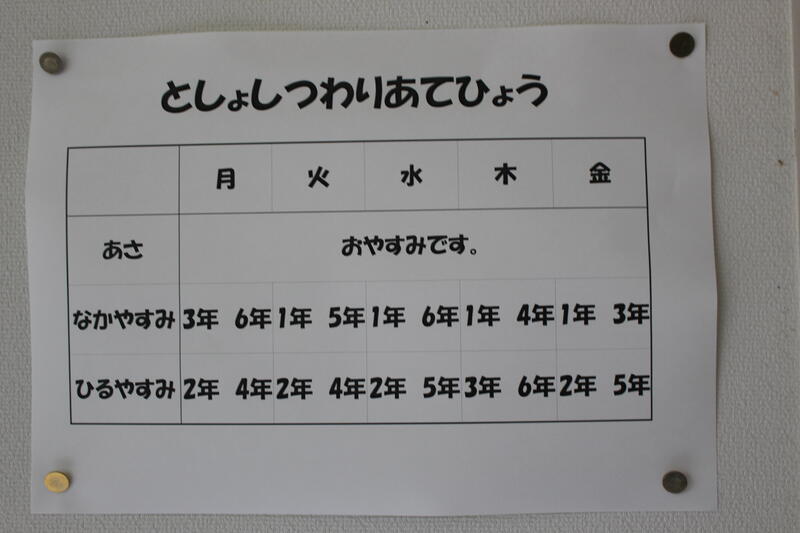 としょしつわりあてひょう
月 火 水 木 金
あさ おやすみです。
なかやすみ 3年 6年 1年 5年 1年 6年 1年 4年 1年 3年
ひるやすみ 2年 4年 2年 4年 2年 5年 3年 6年 2年 5年